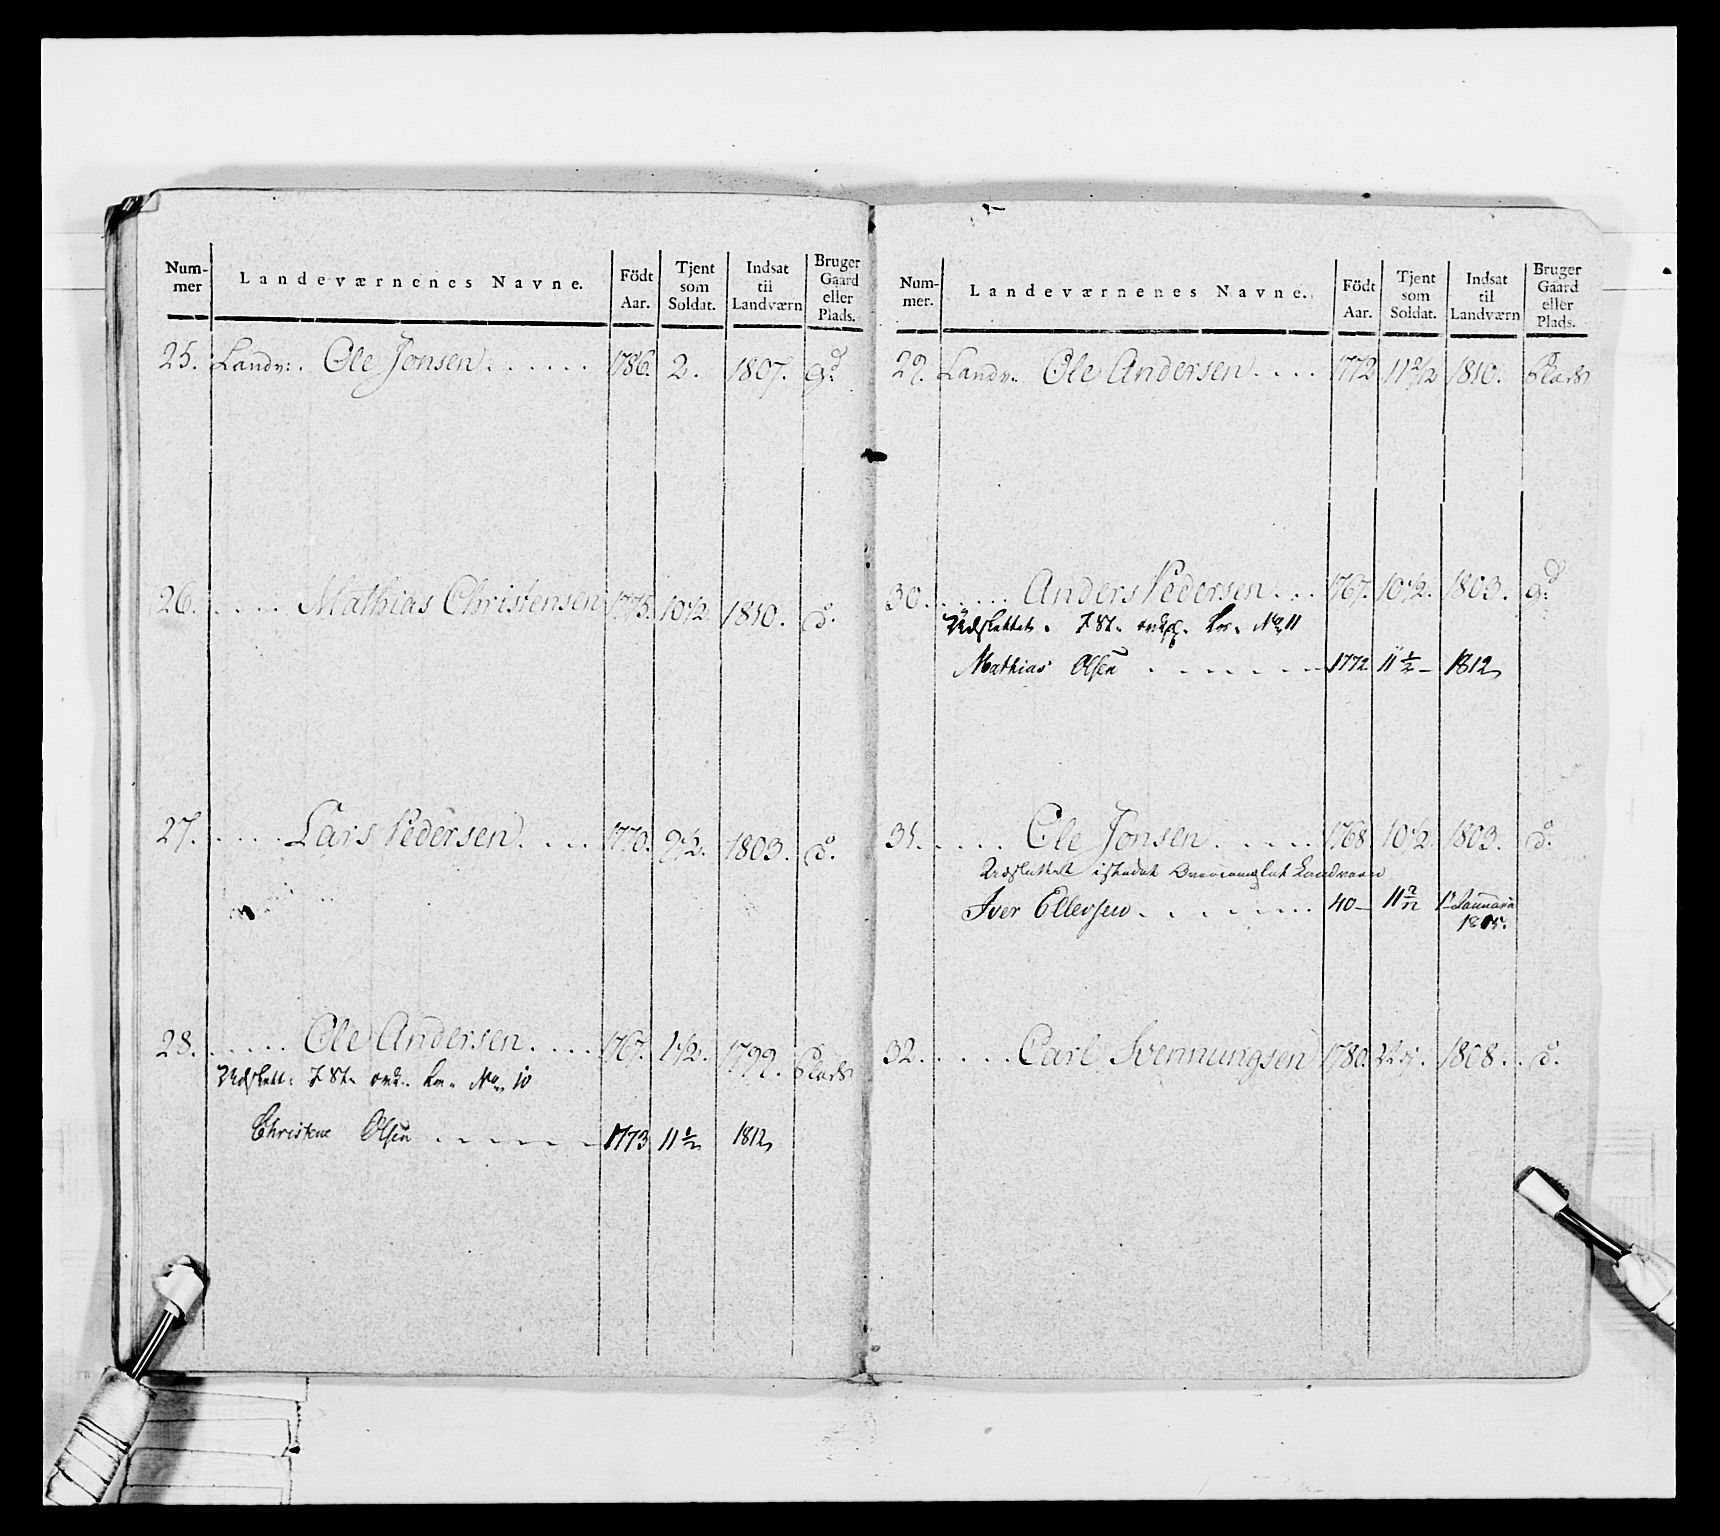 Num-
mer
Landeværnenes Navne.
Födt
Aar.
Tjent
som
Soldat.
Indsat
til
Landværn
Bruger
Gaard
eller
Plads.
25. Landv: Ole Jonsen . . . . . . 1786. 2. 1807. Gd
26. . . . . . Mathias Christensen 1775. 10 1/2. 1810. do.
27. . . . . Lars Pedersen . . . . 1770. 9 1/2. 1803. do.
28. . . . . . Ole Andersen . . . . 1767. 1 1/2. 1799. Plads
Udslett: I St. Lv. No 10
Christen Olsen . . . . . . 1773 11 1/2 1812,
Num-
mer.
Landeværnenes Navne.
Födt
Aar.
Tjent
som
Soldat.
Indsat
til
Landværn
Bruger
Gaard
eller
Plads.
29. Landv: Ole Andersen . . . . 1772 11 2/12 1810. Plads
30. . . . . . Anders Pedersen . . . 1767. 10 1/2. 1803. Gd
Udslettet. I St. Lv. No 11
Mathias Olsen . . . . . . 1772 11 1/2 - 1812,
31. . . . . . Ole Jonsen . . . . . 1768 10 1/2. 1803. do.
Udslettet istedet Overcomplet Landværn
Iver Ellevsen . . . . . . . 40 - 11 2/12 1. Januari
32. . . . . . Carl Svennungsen 1780. 1808. . do.